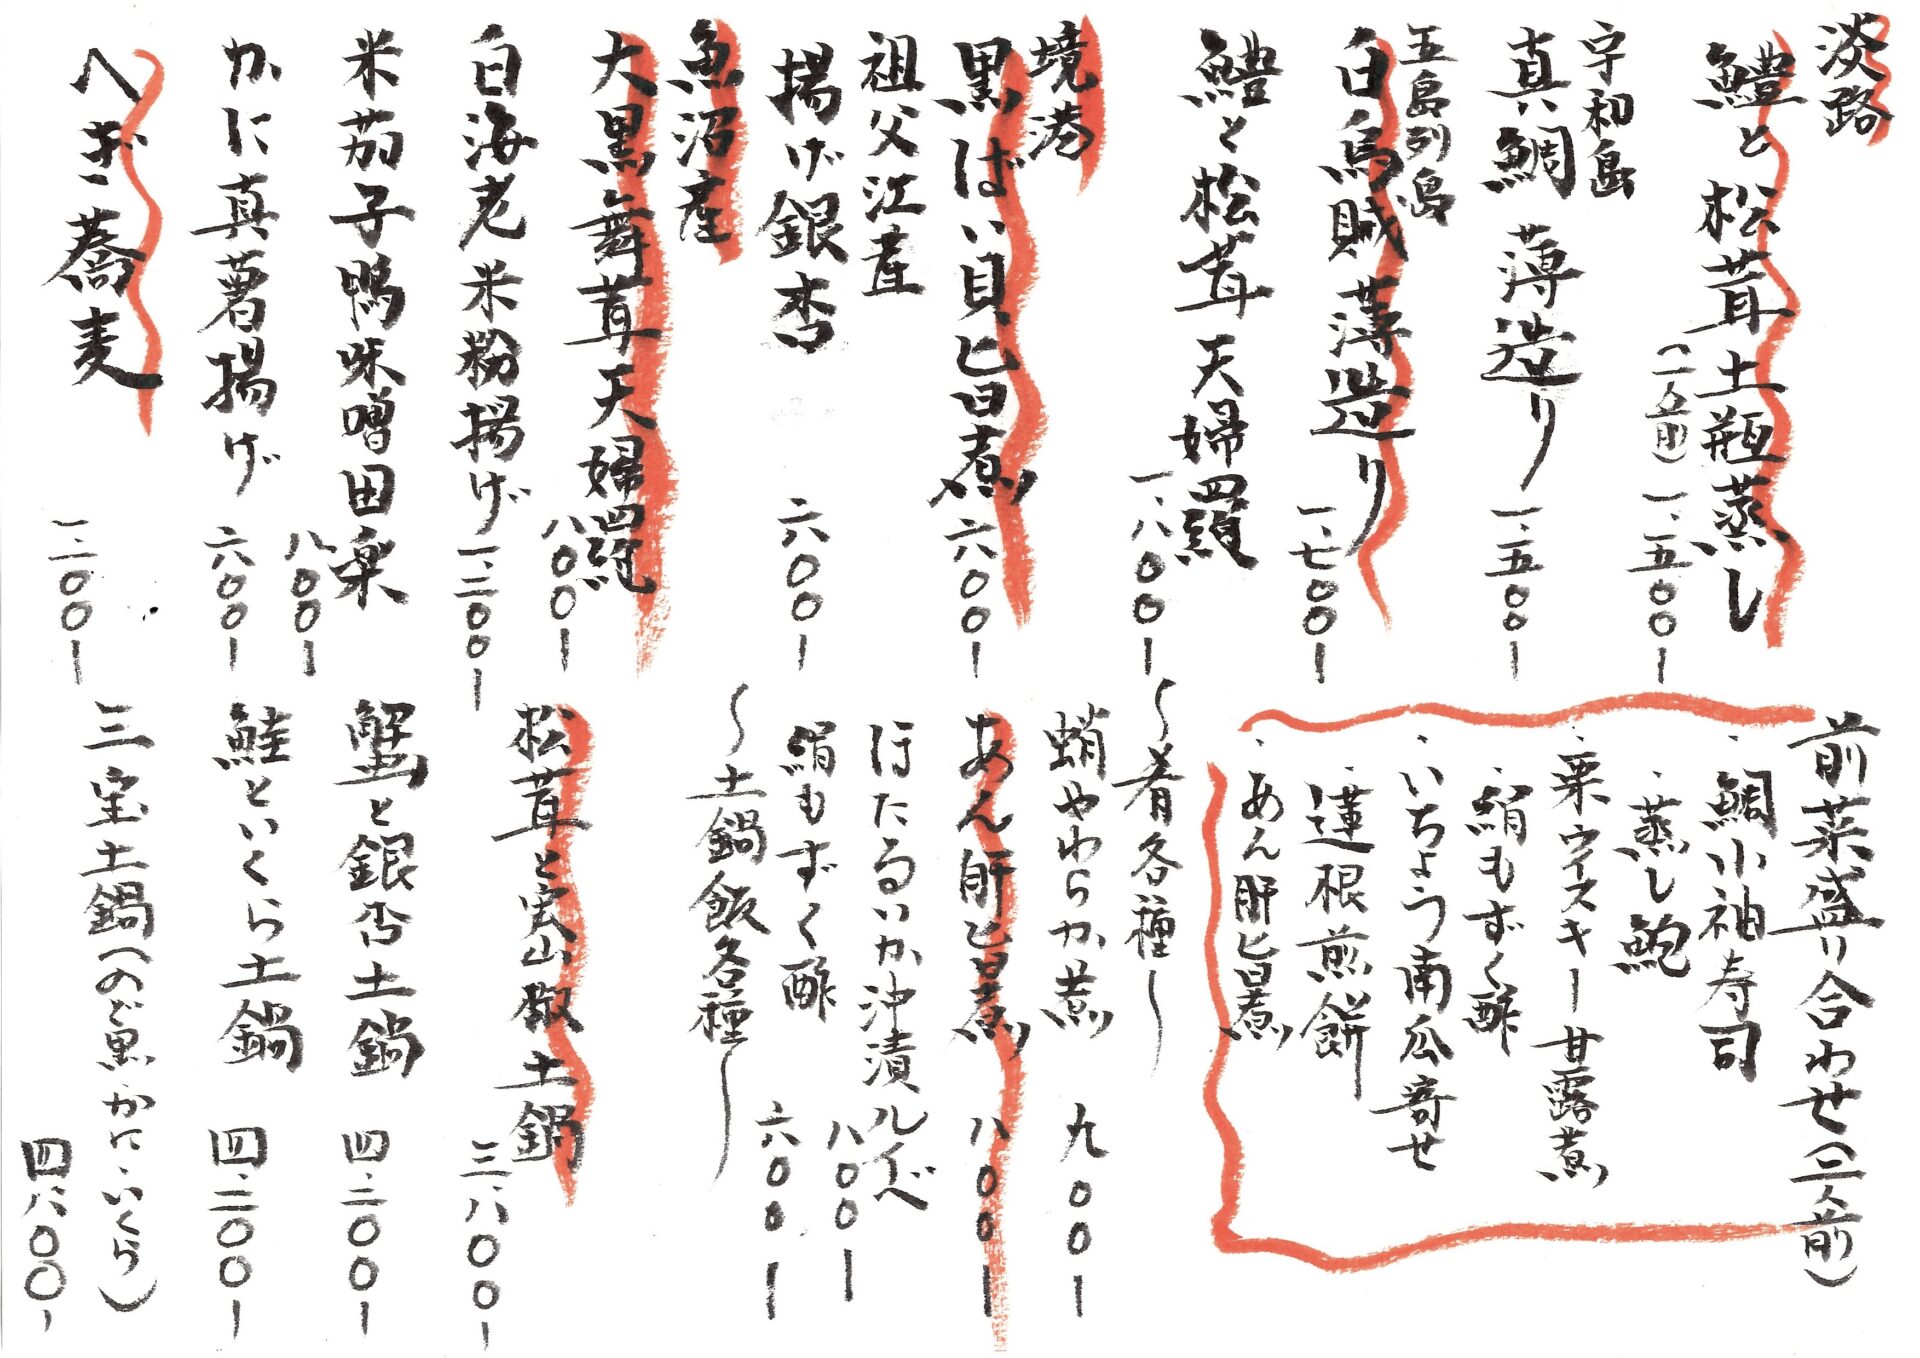 淡路
鱧と松茸土瓶蒸し
(一人前) 一、五〇〇ー
宇和島
真鯛薄造り
一、五〇〇ー
五島列島
白烏賊薄造り
一、七〇〇ー
鱧と松茸天婦羅
一、八〇〇ー
境港
黒ばい貝旨煮
六〇〇ー
祖父江産
揚げ銀杏
六〇〇ー
魚沼産
大黒舞茸天婦羅
八〇〇ー
白海老米粉揚げ
一、二〇〇ー
米茄子鴨味噌田楽
八〇〇ー
かに真薯揚げ
六〇〇ー
へぎ蕎麦
一、二〇〇ー
前菜盛り合わせ(二人前)
・鯛小袖寿司
・蒸し鮑
・栗ウイスキー甘露煮
・絹もずく酢
・いちょう南瓜寄せ
・蓮根煎餅
・あん肝旨煮
〜肴各種〜
蛸やわらか煮
九〇〇ー
あん肝旨煮
八〇〇ー
ほたるいか沖漬ルイベ
八〇〇ー
絹もずく酢
六〇〇ー
〜土鍋飯各種〜
松茸と実山椒土鍋
三、八〇〇ー
蟹と銀杏土鍋
四、二〇〇ー
鮭といくら土鍋
四、二〇〇ー
三宝土鍋(のど黒・かに・いくら)
四、八〇〇ー